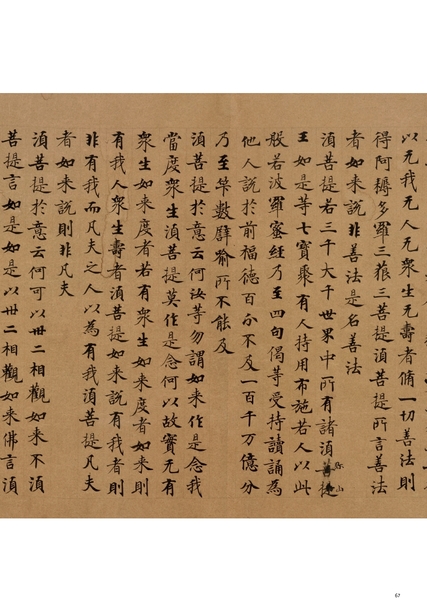 以无我无人无衆生无壽者脩一切善法則
得阿耨多羅三藐三菩提湏菩提所言善法
者如来說非善法是名善法
湏菩提若三千大千世界中所有諸湏弥山
王如是等七寶聚有人持用布施若人以此
般若波羅蜜經乃至四句偈等受持讀誦為
他人說於前福德百分不及一百千万億分
乃至筭數譬喻所不能及
湏菩提於意云何汝等勿謂如来作是念我
當度衆生湏菩提莫作是念何以故實无有
衆生如来度者若有衆生如来度者如来則
有我人衆生壽者湏菩提如来說有我者則
非有我而凡夫之人以為有我湏菩提凡夫
者如来說則非凡夫
湏菩提於意云何可以卅二相觀如来不湏
菩提言如是如是以卅二相觀如来佛言湏
67